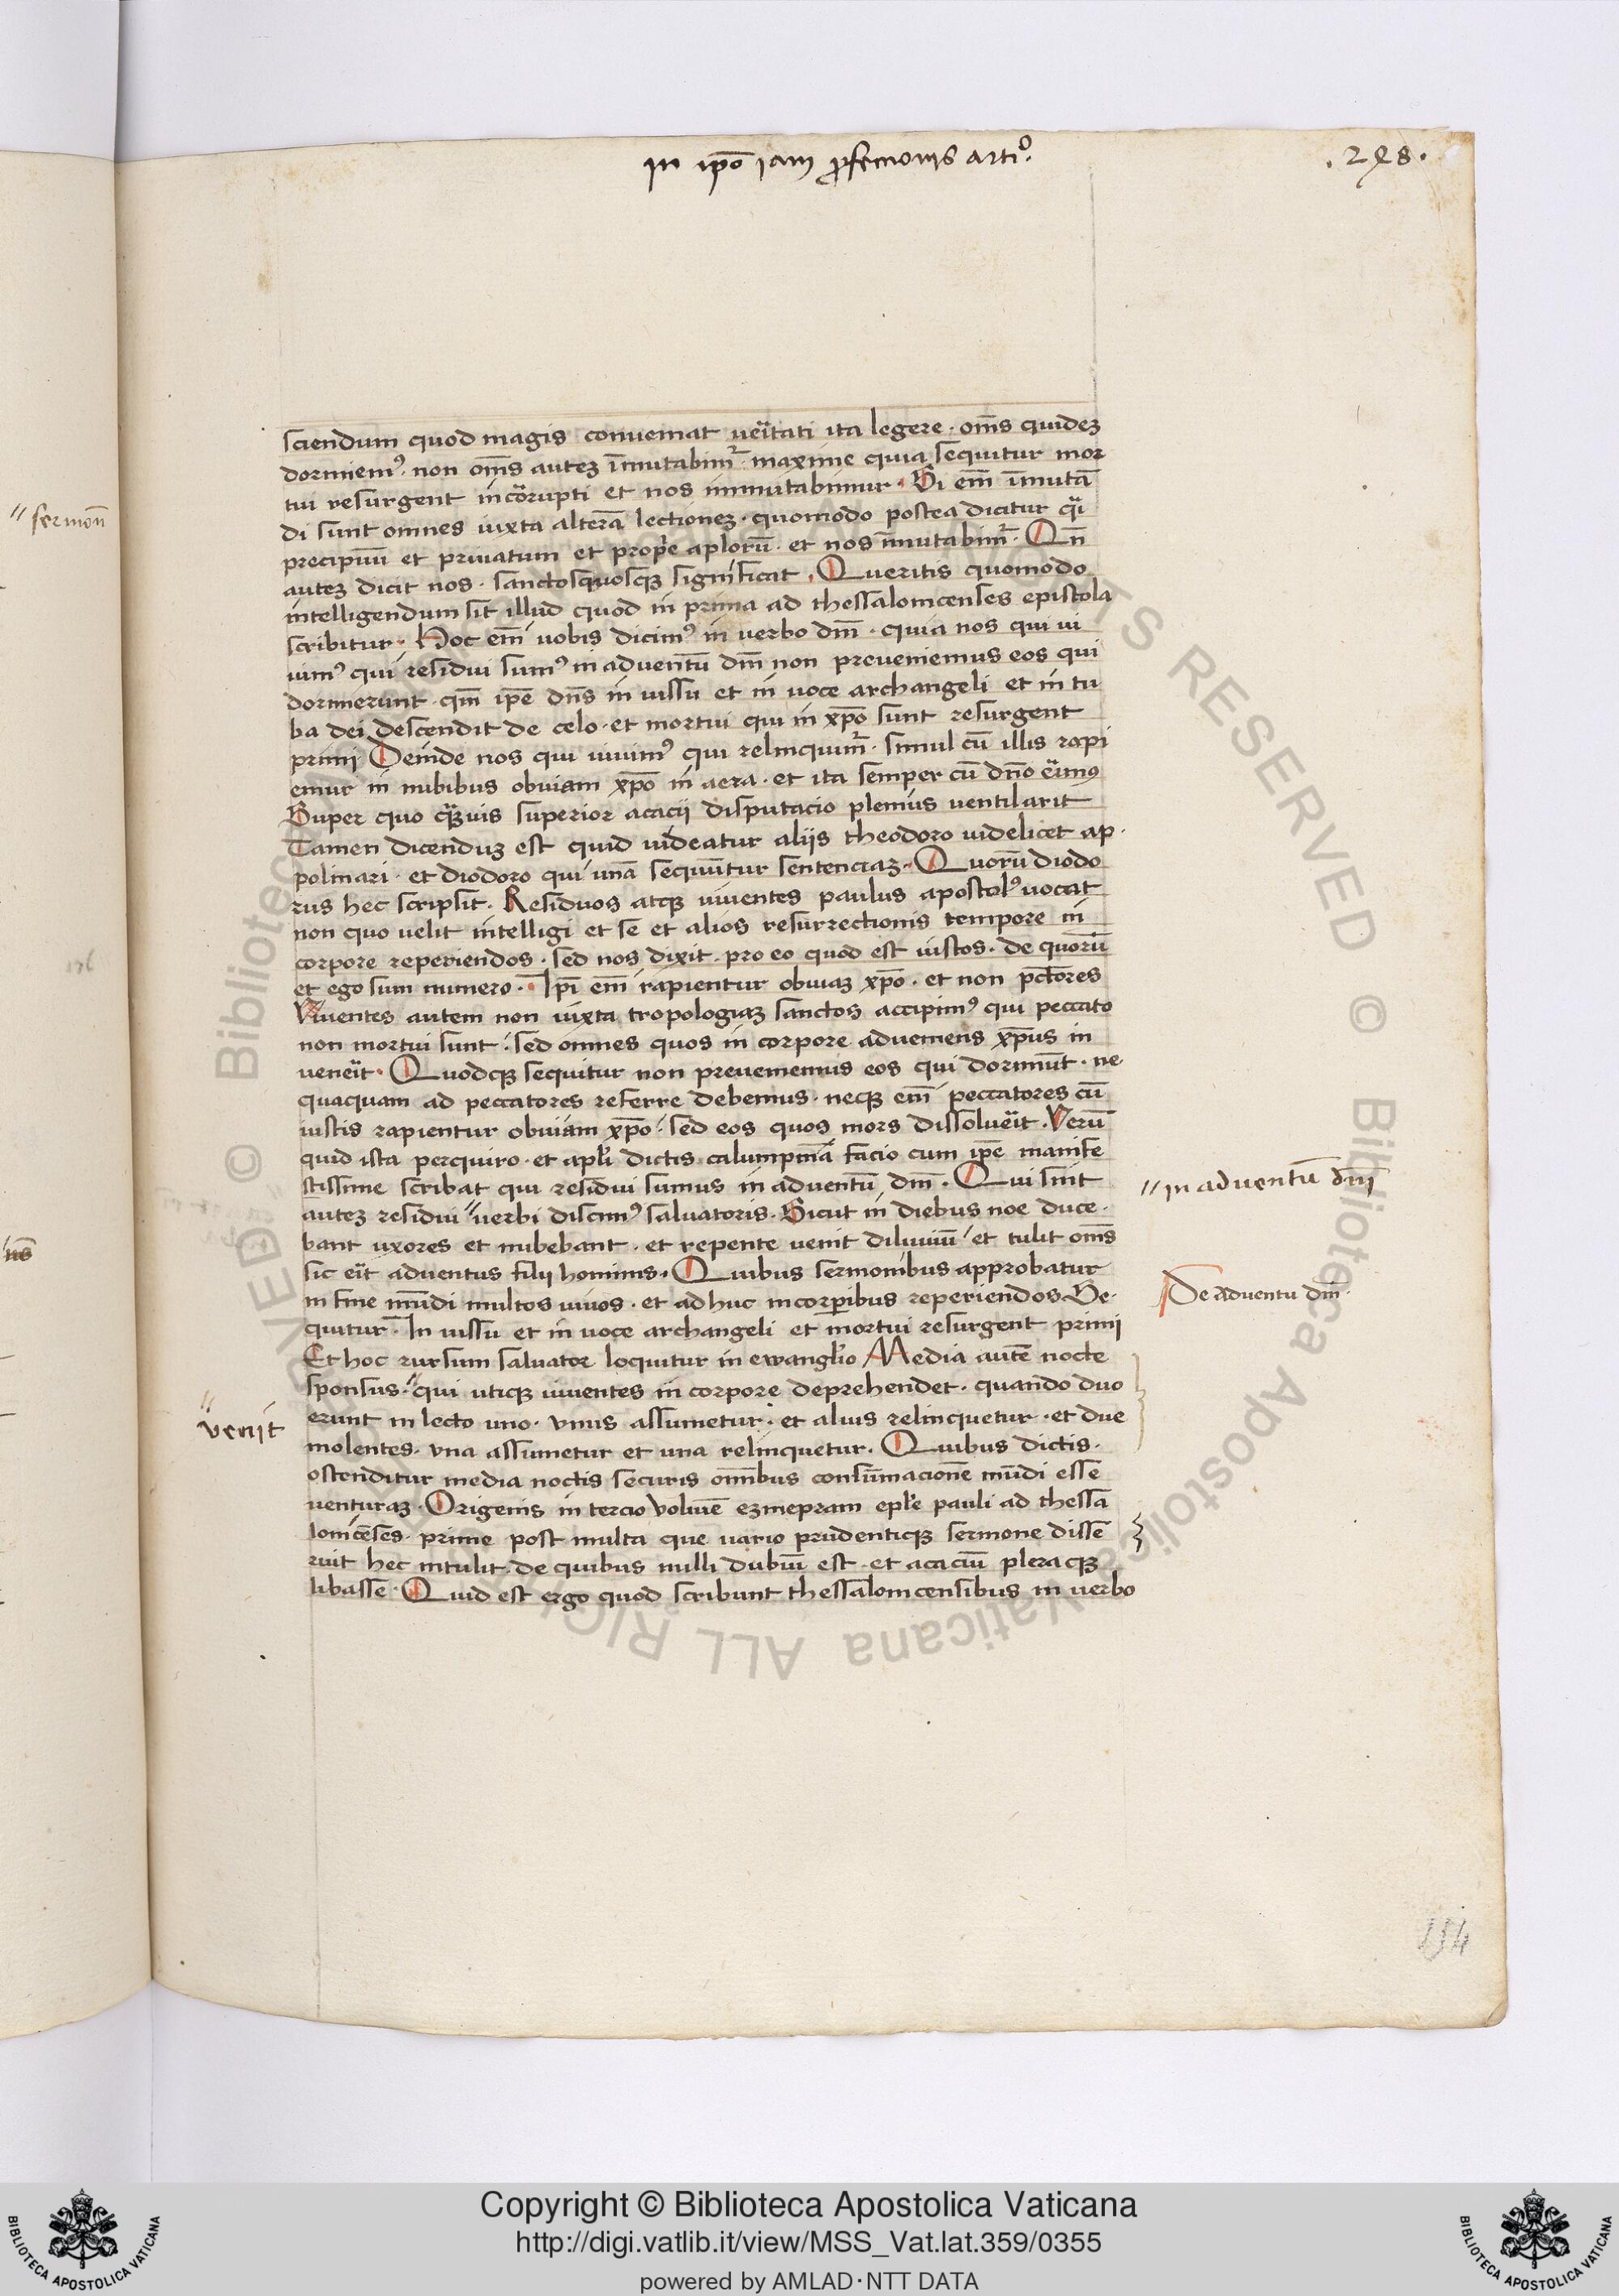 in ipō iam ꝓfectionis arti⁰.
. 248 .
sciendum quod magis conueniat ueītati ita legere · om̄s quidez
dormiemꝰ · non om̄s autez īmutabimr̄ · maxime quia sequitur mor
tui resurgent incorrupti et nos immutabimur · Si em̄ īmutā
di sunt omnes iuxta alterā lectionez · quomodo postea dicitur q̄i
precipuū et priuatum et prop̄e aplorū · et nos īmutabimr̄ · Qn̄
autez dicit nos · sanctosquosqꝫ significat · Queritis quomodo
intelligendum sit illud quod in prima ad thessalonicenses epistola
scribitur · Hoc em̄ uobis dicimꝰ in uerbo dm̄ · quia nos qui ui
uimꝰ qui residui sumꝰ in aduentū dm̄ non preueniemus eos qui
dormierunt · qm̄ ip̄e dn̄s in iussu et in uoce archangeli et in tu
ba dei descendit de celo · et mortui qui in xp̄o sunt resurgent
primi Deinde nos qui uiuimꝰ qui relinquimr̄ · simul cū illis rapi
emur in nubibus obuiam xp̄o in aera · et ita semper cū dn̄o eīmꝰ
Super quo q̄uis superior acacii disputacio plenius uentilarit
Tamen dicenduz est quid uideatur aliis theodoro uidelicet ap ·
polinari · et diodoro qui unā sequūtur sentenciaz · Quorū diodo
rus hec scripsit · Residuos atqꝫ uiuentes paulus apostolꝰ uocat
non quo uelit intelligi et se et alios resurrectionis tempore in
corpore reperiendos · sed nos dixit · pro eo quod est iustos · de quorū
et ego sum numero · Ip̄i em̄ rapientur obuiaz xp̄o · et non pctores
Viuentes autem non iuxta tropologiaz sanctos accipimꝰ qui peccato
non mortui sunt · sed omnes quos in corpore adueniens xp̄us in
ueneīt · Quodqꝫ sequitur non preueniemus eos qui dormiūt · ne
quaquam ad peccatores referre debemus · neqꝫ em̄ peccatores cū
iustis rapientur obuiam xp̄o · sed eos quos mors dissolueīt · Verū
quid ista perquiro · et apl̄i dictis calumpniā facio cum ip̄e manife
stissime scribat qui residui sumus in aduentū dm̄ · Qui sint
autez residui " uerbi discimꝰ saluatoris · Sicut in diebus noe duce ·
bant uxores et nubebant · et repente uenit diluuiū et tulit om̄s
sic eīt aduentus filii hominis · Quibus sermonibus approbatur
in fine mūdi multos uiuos · et adhuc in corꝑibus reperiendos Se ·
quitur · In iussu et in uoce archangeli et mortui resurgent primi
Et hoc rursum saluator loquitur in ewangl̄io Media autē nocte
sponsus · " qui utiqꝫ uiuentes in corpore deprehendet · quando duo
erunt in lecto uno · vnus assumetur · et alius relinquetur · et due
molentes · vna assumetur et una relinquetur · Quibus dictis ·
ostenditur media noctis securis om̄ibus consūmacionē mūdi esse
uenturaz · Origenis in tercio volumē ezmepram epl̄e pauli ad thessa
lonicēses · prime post multa que uario prudentiqꝫ sermone disse
ruit hec intulit · de quibus nulli dubiū est · et acaciū pleraqꝫ
libasse · Quid est ergo quod scribunt thessalonicensibus in uerbo
" sermon̄
" in aduentū dm̄i
De aduentu dm̄
" venit
ns̄
154
Copyright © Biblioteca Apostolica Vaticana
http://digi.vatlib.it/view/MSS_Vat.lat.359/0355
powered by AMLAD·NTT DATA
BIBLIOTECA APOSTOLICA VATICANA
BIBLIOTECA APOSTOLICA VATICANA
© Biblioteca Apostolica Vaticana ALL RIGHTS RESERVED